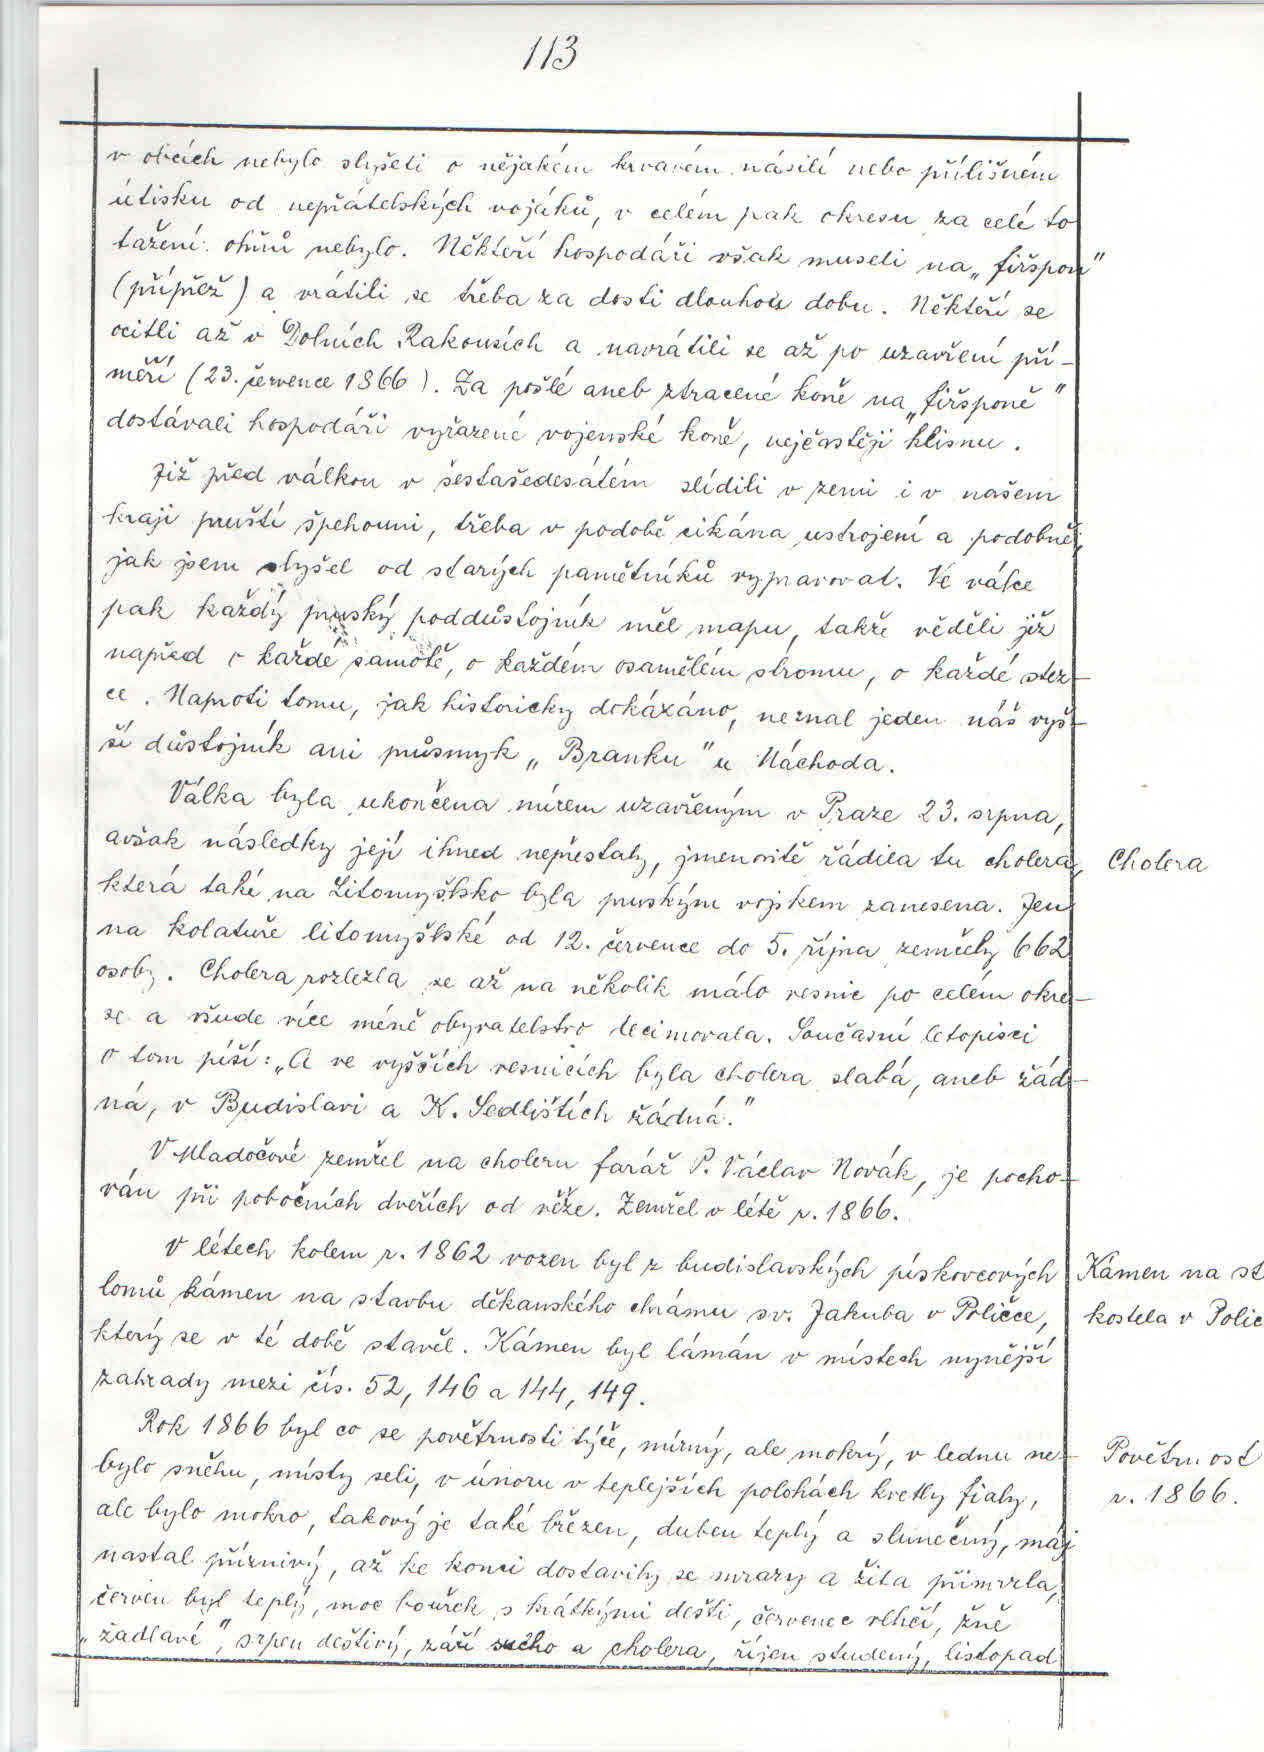 113
v obcích nebylo slyšeti o nějakém krvavém násilí nebo přílišném
útisku od nepřátelských vojáků, v celém pak okresu za celé to
tažení ohňů nebylo. Někteří hospodáři však museli na „firšpon"
(přípřež) a vrátili se třeba za dosti dlouhou dobu. Někteří se
ocitli až v Dolních Rakousích a navrátili se až po uzavření pří-
měří (23. července 1866). Za pošlé aneb ztracené koně na „firšponě"
dostávali hospodáři vyřazené vojenské koně, nejčastěji klisnu.
Již před válkou v šestašedesátém slídili v zemi i v našem
kraji pruští špehouni, třeba v podobě cikána ustrojení a podobně,
jak jsem slyšel od starých pamětníků vypravovat. Ve válce
pak každý pruský poddůstojník měl mapu, takže věděli již
napřed o každé samotě, o každém osamělém stromu, o každé stez-
ce. Naproti tomu, jak historicky dokázáno, neznal jeden náš vyš-
ší důstojník ani průsmyk „Branku" u Náchoda.
Válka byla ukončena mírem uzavřeným v Praze 23. srpna,
avšak následky její ihned nepřestaly, jmenovitě řádila tu cholera,
Cholera
která také na Litomyšlsko byla pruským vojskem zanesena. Jen
na kolatuře litomyšlské od 12. července do 5. října zemřely 662
osoby. Cholera rozlezla se až na několik málo vesnic po celém okre-
se a všude více méně obyvatelstvo decimovala. Současní letopisci
o tom píší: „A ve vyšších vesnicích byla cholera slabá, aneb žád-
ná, v Budislavi a K. Sedlištích žádná."
V Mladočově zemřel na choleru farář P. Václav Novák, je pocho-
ván při pobočních dveřích od věže. Zemřel v létě r. 1866.
V létech kolem r. 1862 vozen byl z budislavských pískovcových
Kámen na st
lomů kámen na stavbu děkanského chrámu sv. Jakuba v Poličce,
kostela v Polic
který se v té době stavěl. Kámen byl lámán v místech nynější
zahrady mezi čís. 52, 146 a 144, 149.
Rok 1866 byl co se povětrnosti týče, mírný, ale mokrý, v lednu ne-
Povětrnost
bylo sněhu, místy seli, v únoru v teplejších polohách kvetly fialy,
r. 1866.
ale bylo mokro, takový je také březen, duben teplý a slunečný, máj
nastal příznivý, až ke konci dostavily se mrazy a žita přimrzla,
červen byl teplý, moc bouřek s krátkými dešti, červenec vlhčí, žně
„žadlavé", srpen deštivý, září sucho a cholera, říjen studený, listopad